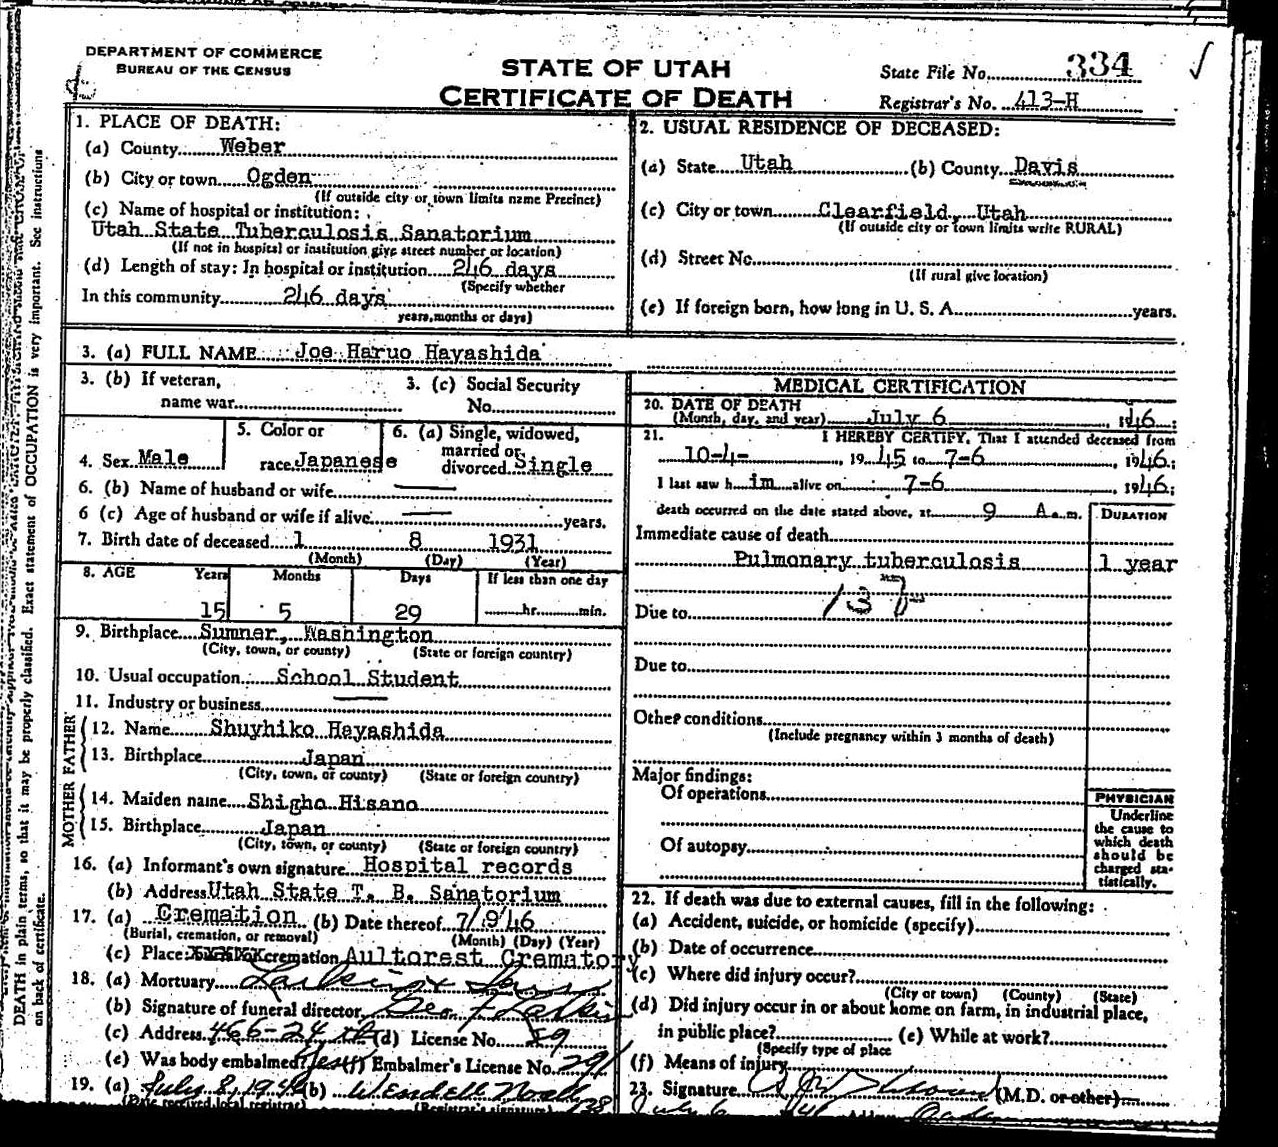 DEPARTMENT OF COMMERCE
BUREAU OF THE CENSUS
STATE OF UTAH
CERTIFICATE OF DEATH
State File No. 334
Registrar's No. 413-H
1. PLACE OF DEATH:
(a) County Weber
(b) City or town Ogden
(If outside city or town limits name Precinct)
(c) Name of hospital or institution:
Utah State Tuberculosis Sanatorium
(If not in hospital or institution give street number or location)
(d) Length of stay: In hospital or institution 246 days
(Specify whether
In this community 246 days
years, months or days)
2. USUAL RESIDENCE OF DECEASED:
(a) State Utah (b) County Davis
(c) City or town Clearfield, Utah
(If outside city or town limits write RURAL)
(d) Street No.
(If rural give location)
(e) If foreign born, how long in U. S. A. years.
3. (a) FULL NAME Joe Haruo Hayashida
3. (b) If veteran,
name war
3. (c) Social Security
No.
4. Sex Male
5. Color or
race Japanese
6. (a) Single, widowed,
married or
divorced Single
6. (b) Name of husband or wife
6 (c) Age of husband or wife if alive years.
7. Birth date of deceased 1 8 1931
(Month) (Day) (Year)
8. AGE Years Months Days If less than one day
15 5 29 hr. min.
9. Birthplace Sumner, Washington
(City, town, or county) (State or foreign country)
10. Usual occupation School Student
11. Industry or business
FATHER
12. Name Shuyhiko Hayashida
13. Birthplace Japan
(City, town, or county) (State or foreign country)
MOTHER
14. Maiden name Shigho Hisano
15. Birthplace Japan
(City, town, or county) (State or foreign country)
16. (a) Informant's own signature Hospital records
(b) Address Utah State T. B. Sanatorium
17. (a) Cremation (b) Date thereof 7/9/46
(Burial, cremation, or removal) (Month) (Day) (Year)
(c) Place: cremation Aultorest Crematory
18. (a) Mortuary Larkin & Sons
(b) Signature of funeral director Geo F Larkin
(c) Address 466-24 th (d) License No. 89
(e) Was body embalmed? Yes (f) Embalmer's License No. 291
19. (a) July 8, 1946 (b) Wendell
(Date received local registrar) (Registrar's signature)
MEDICAL CERTIFICATION
20. DATE OF DEATH
(Month, day, and year) July 6 , 1946.
21. I HEREBY CERTIFY, That I attended deceased from
10-4- , 19 45 to 7-6 , 1946;
I last saw h im alive on 7-6 , 1946;
death occurred on the date stated above, at 9 A.m.
DURATION
Immediate cause of death
Pulmonary tuberculosis 1 year
Due to
Due to
Other conditions
(Include pregnancy within 3 months of death)
Major findings:
Of operations
Of autopsy
PHYSICIAN
Underline
the cause to
which death
should be
charged sta-
tistically.
22. If death was due to external causes, fill in the following:
(a) Accident, suicide, or homicide (specify)
(b) Date of occurrence
(c) Where did injury occur?
(City or town) (County) (State)
(d) Did injury occur in or about home on farm, in industrial place,
in public place? (e) While at work?
(Specify type of place
(f) Means of injury
23. Signature (M.D. or other)
July 6
DEATH in plain terms, so that it may be properly classified. Exact statement of OCCUPATION is very important. See instructions
on back of certificate.